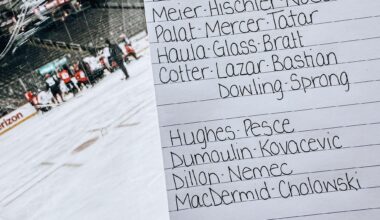 Meier·Hischier·Noesen
Palat·Mercer·Tatar
Haula·Glass·Bratt
Cotter·Lazar·Bastian
Dowling·Sprong
Hughes·Pesce
Dumoulin·Kovacevic
Dillon·Nemec
MacDermid·Cholowski
verizon